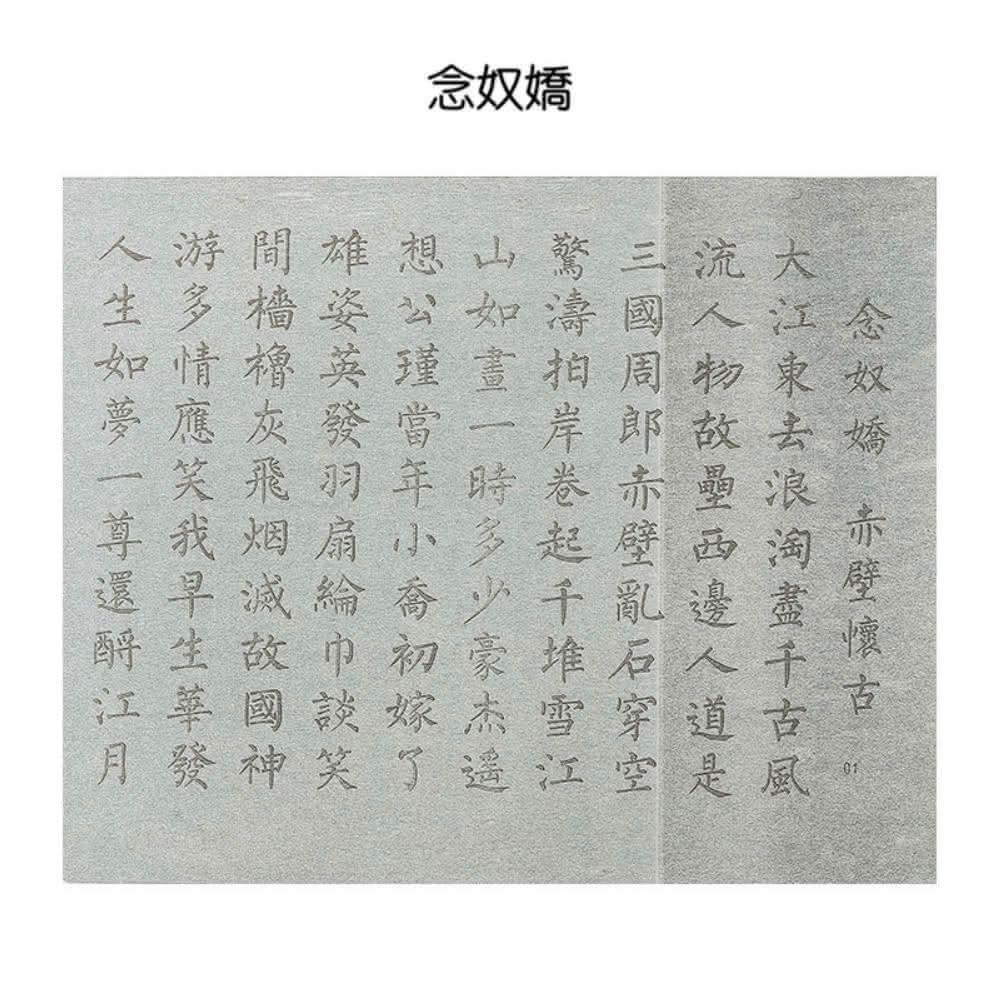 念奴嬌
念奴嬌 赤壁懷古
01
大江東去浪淘盡千古風
流人物故壘西邊人道是
三國周郎赤壁亂石穿空
驚濤拍岸卷起千堆雪江
山如畫一時多少豪杰遥
想公瑾當年小喬初嫁了
雄姿英發羽扇綸巾談笑
間檣櫓灰飛烟滅故國神
游多情應笑我早生華發
人生如夢一尊還酹江月